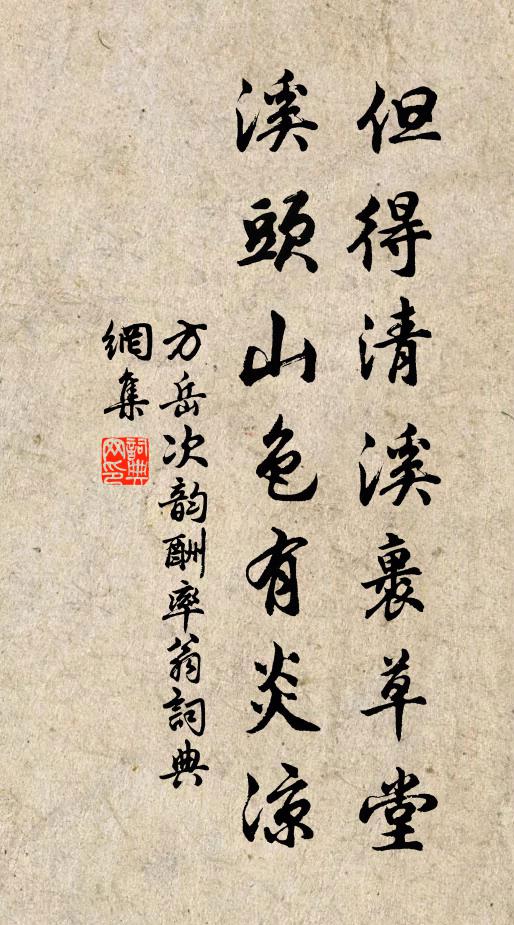 但得清溪裹草堂
溪頭山色有炎涼
方岳次韵酬率翁詞典
網集
詞典
网印